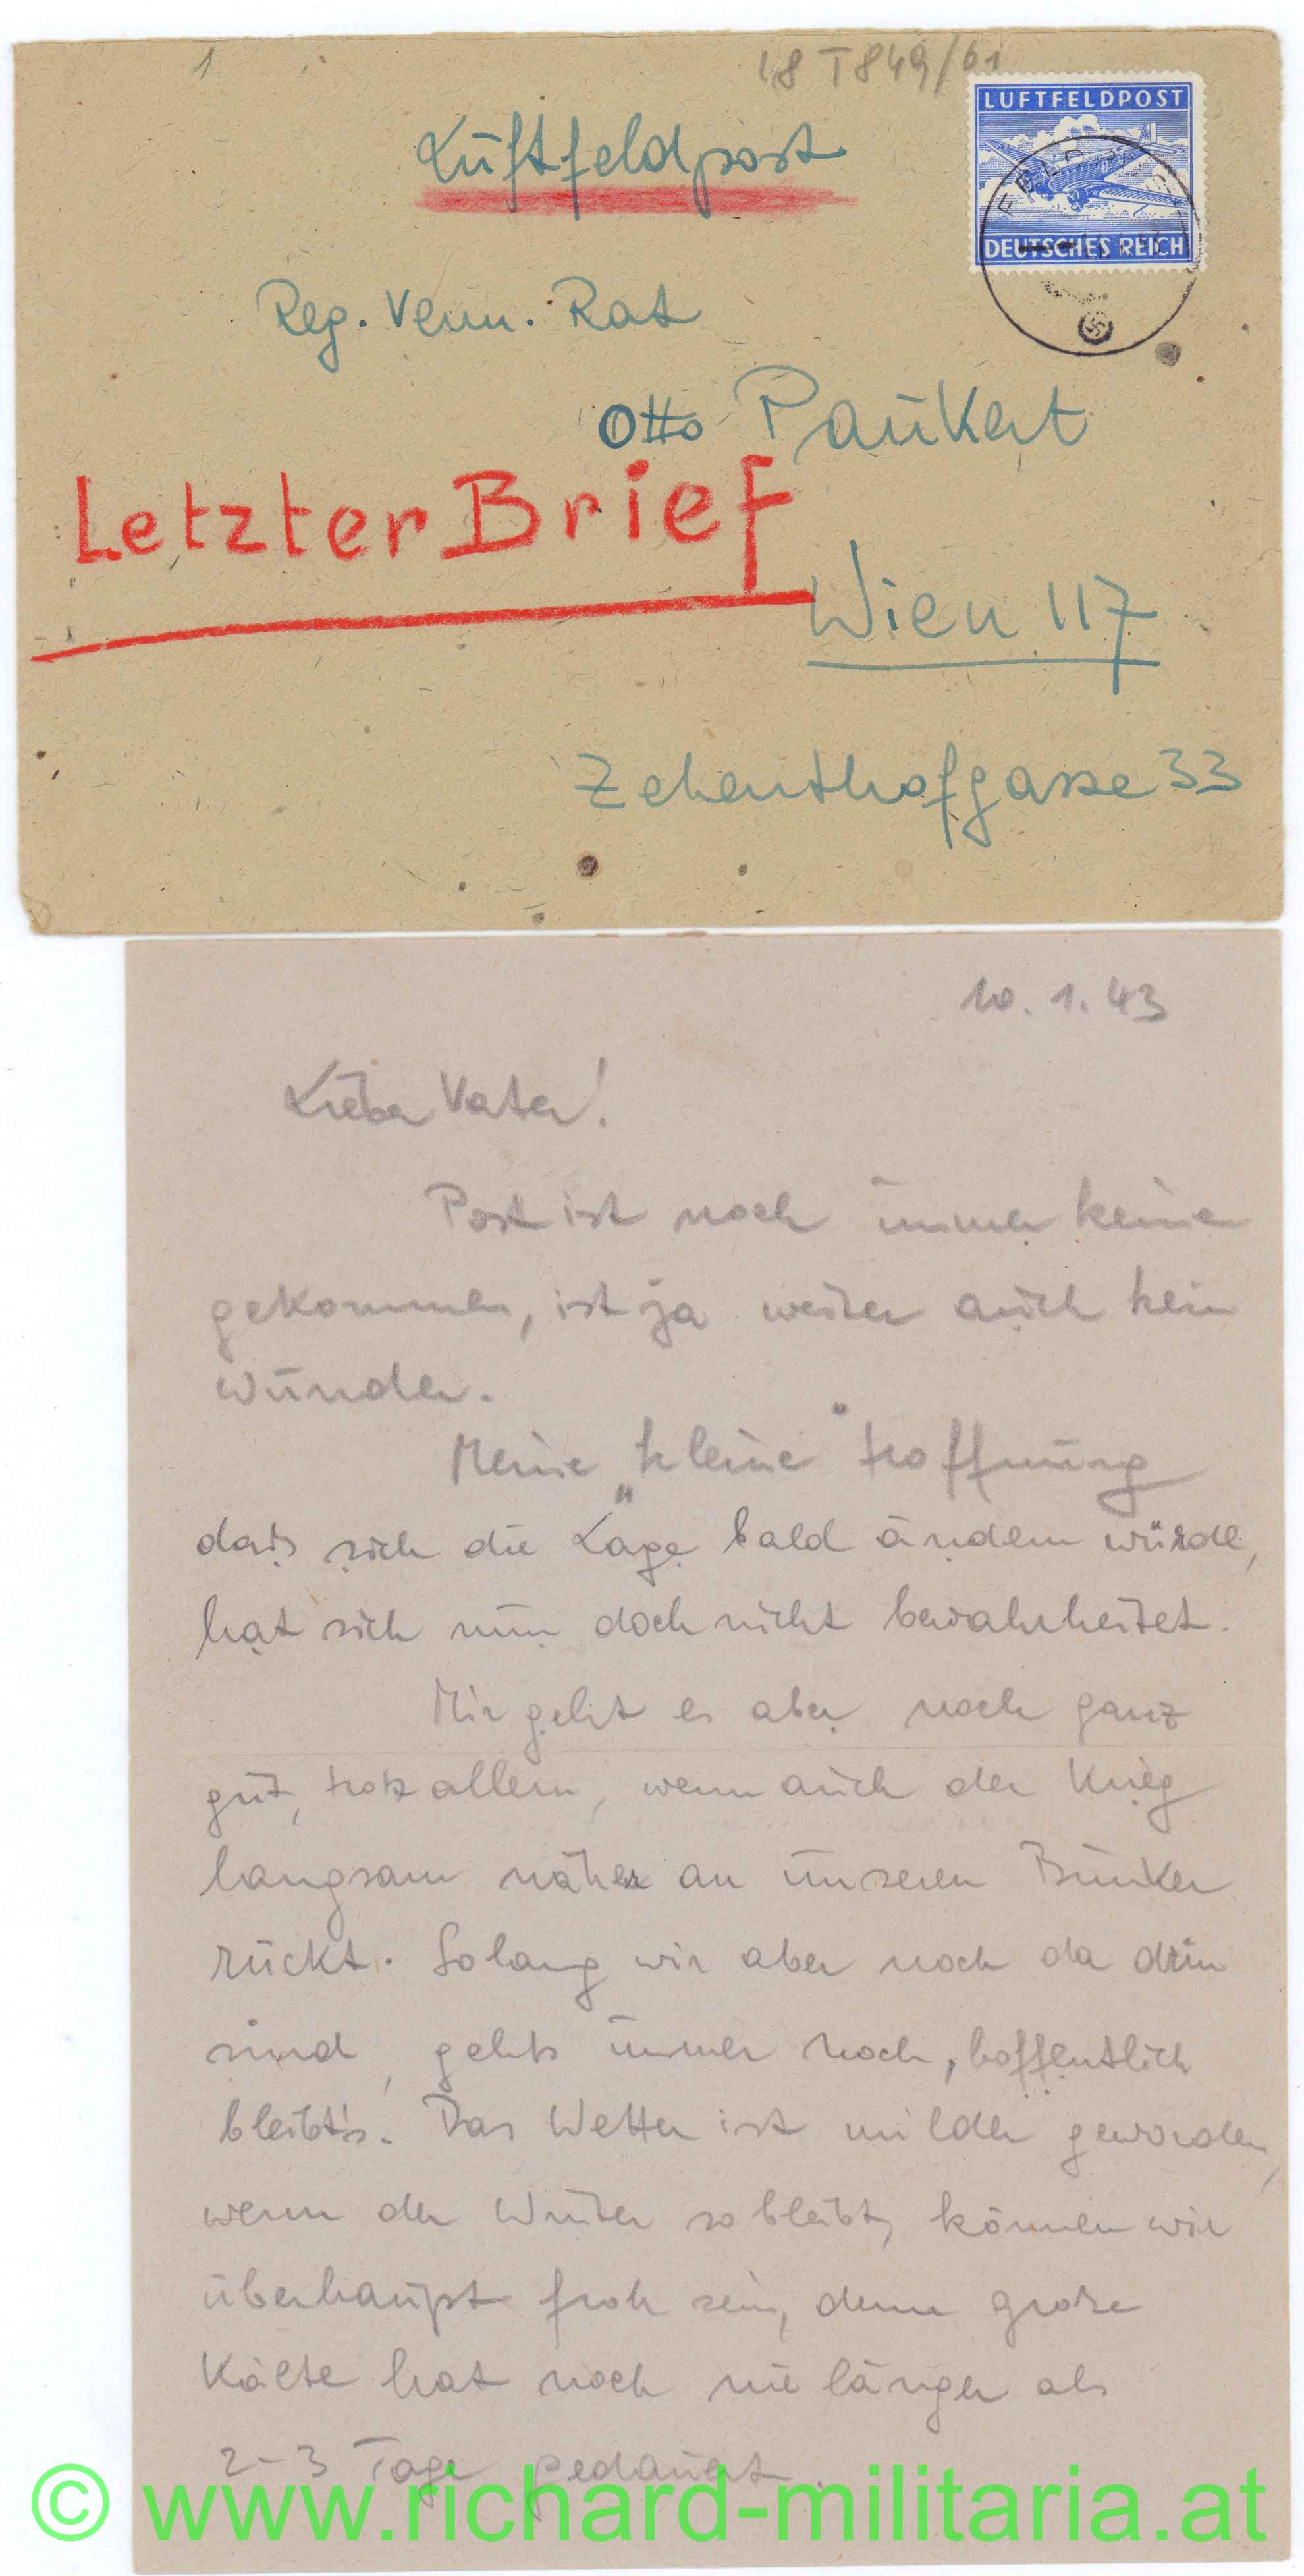 1
18 T 849/61
LUFTFELDPOST
DEUTSCHES REICH
Luftfeldpost
Reg. Verm. Rat
Otto Paukert
Letzter Brief
Wien 117
Zehenthofgasse 33
10. 1. 43
Lieber Vater!
Post ist noch immer keine
gekommen, ist ja weiter auch kein
Wunder.
Meine „kleine" Hoffnung
dass sich die Lage bald ändern würde,
hat sich nun doch nicht bewahrheitet.
Mir geht es aber noch ganz
gut, trotz allem, wenn auch der Krieg
langsam näher an unseren Bunker
rückt. Solang wir aber noch da drin
sind, gehts immer noch, hoffentlich
bleibt's. Das Wetter ist milder geworden,
wenn der Winter so bleibt, können wir
überhaupt froh sein, denn große
Kälte hat noch nie länger als
2-3 Tage gedauert.
© www.richard-militaria.at